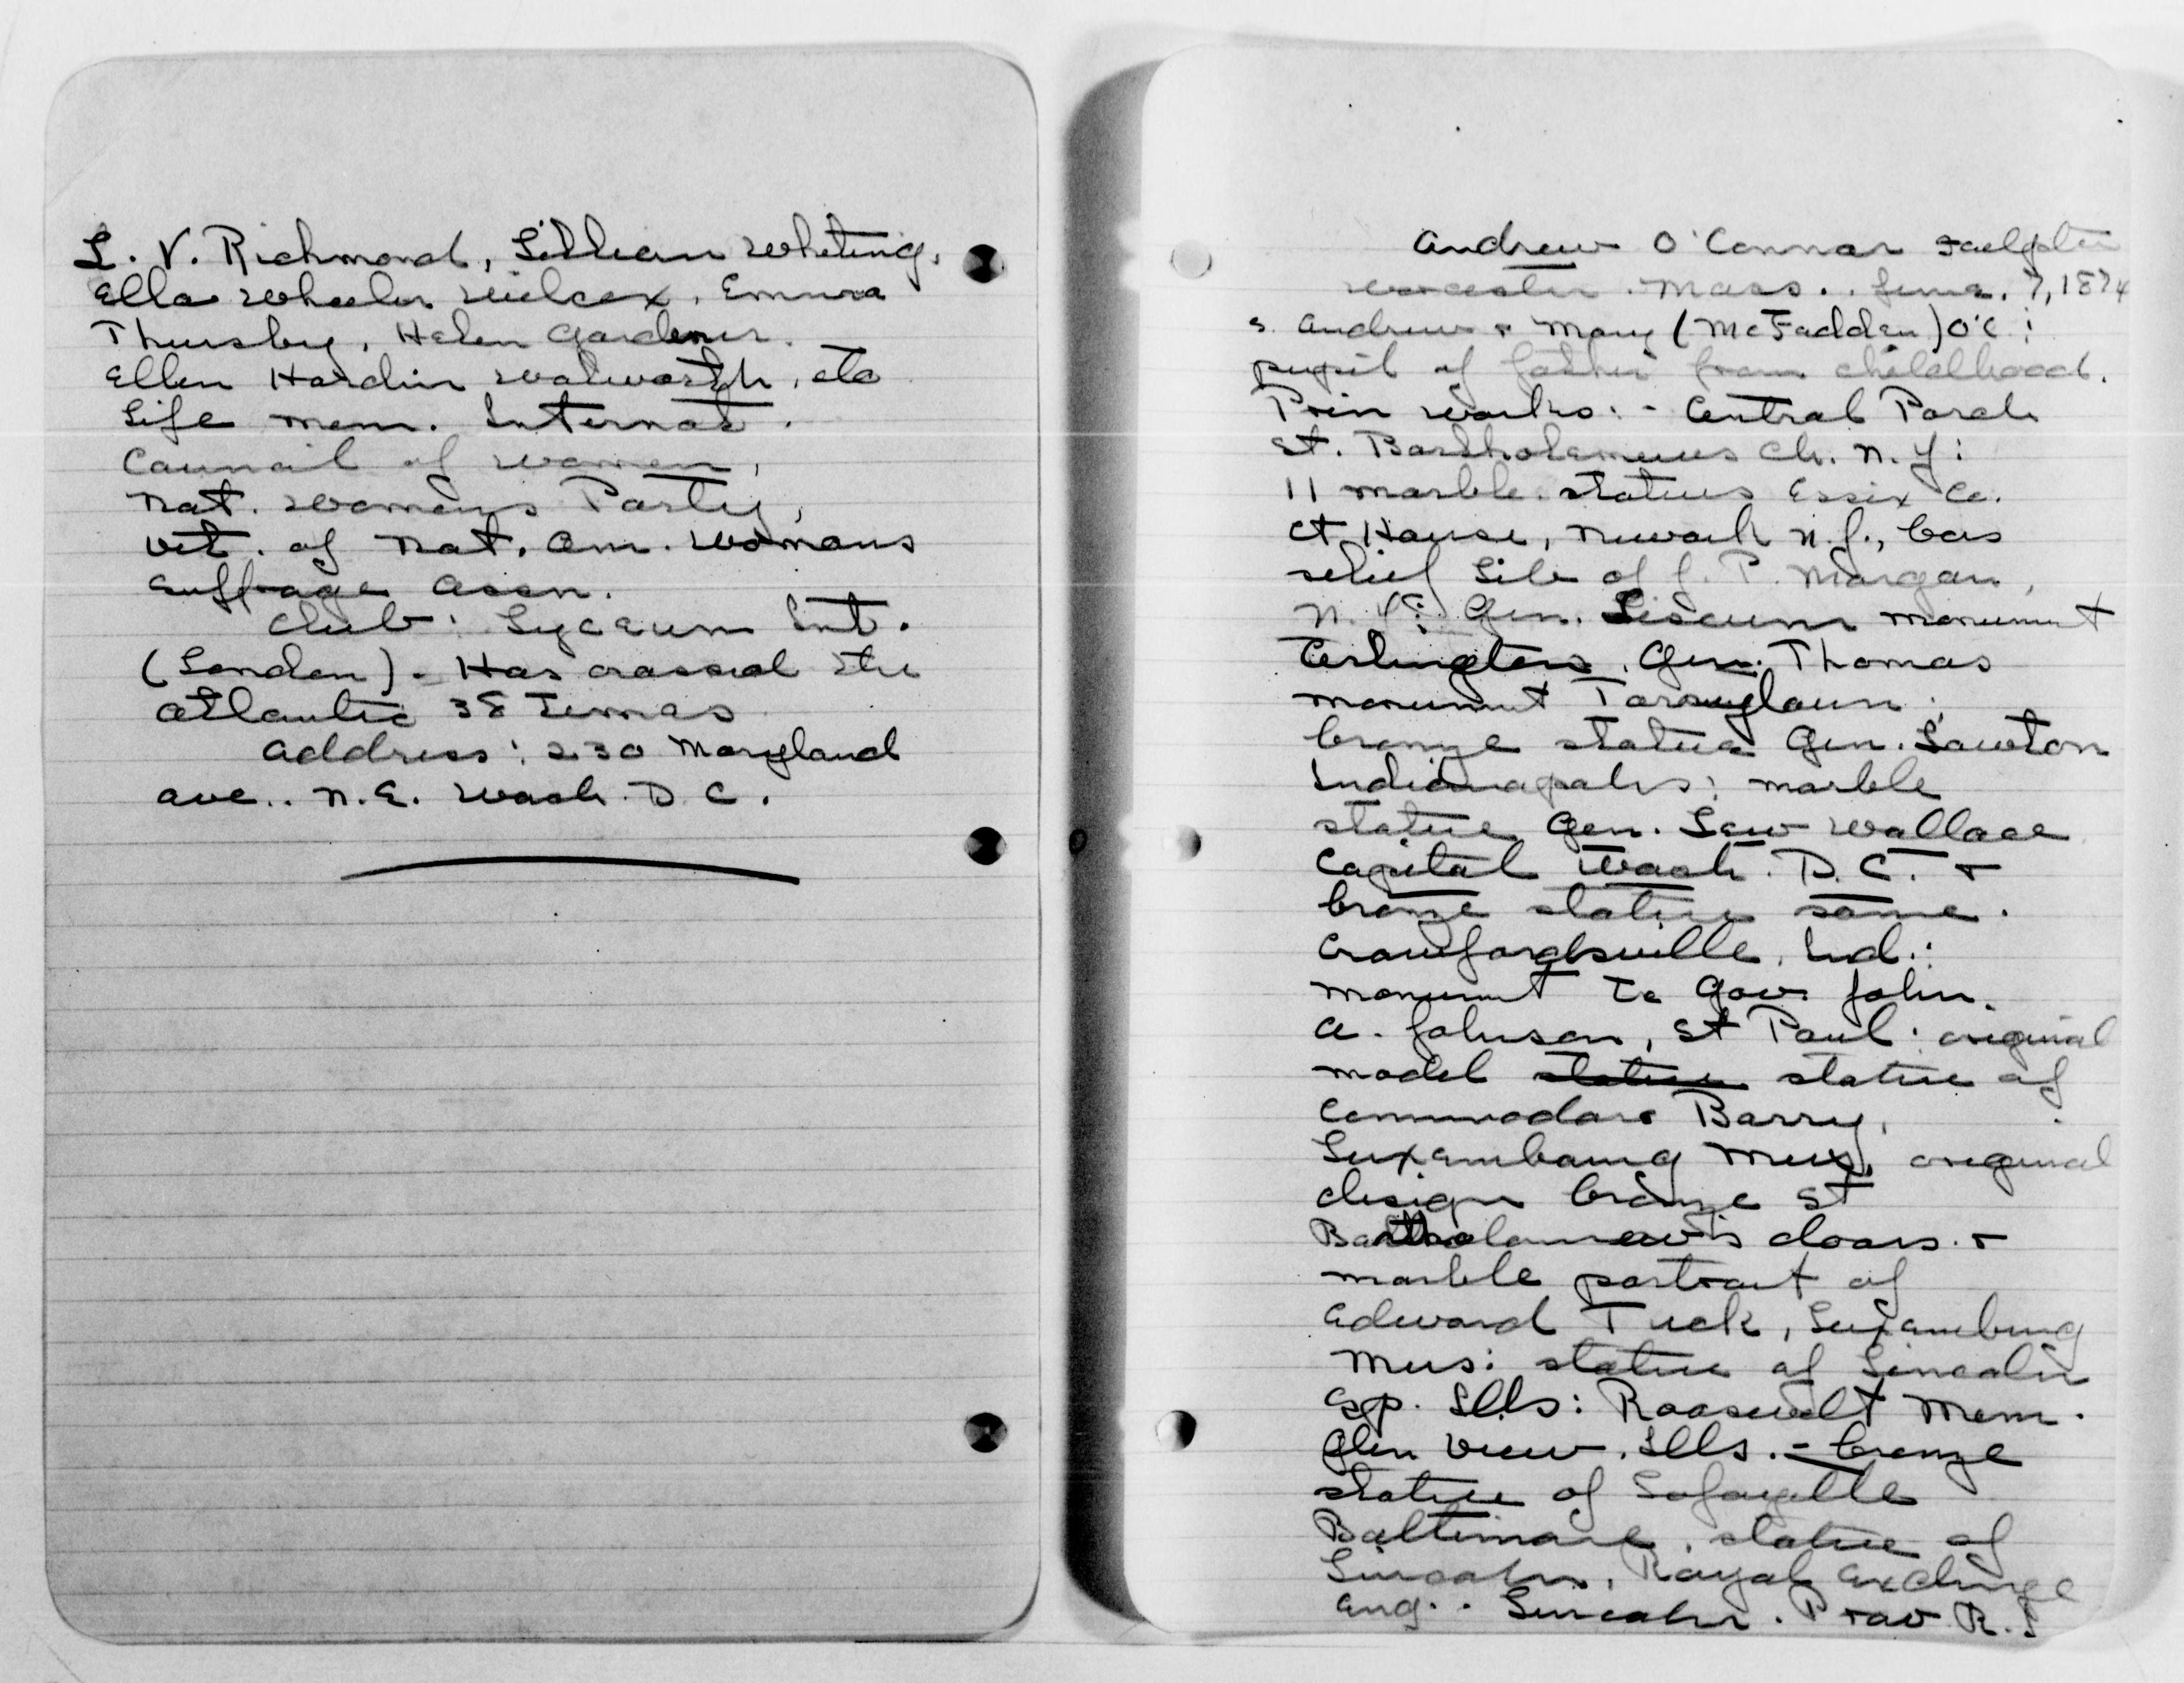 L. V. Richmond, Lillian Whiting,
Ella Wheeler Wilcox, Emma
Thursby, Helen Gardener.
Ellen Hardin Walworth, etc
Life mem. Internat.
Council of Women,
Nat. Womans Party,
Vet. of Nat. Am. Womans
Suffrage Assn.
Club: Lyceum Int.
(London). Has crossed the
Atlantic 38 Times
Address: 230 Maryland
Ave.. N.E. Wash. D.C.
Andrew O'Connor Sculptor
Worcester. Mass.. June. 7, 1874
s. Andrew & Mary (McFadden) O'C:
pupil of father from childhood.
Prin works:- Central Porch
St. Bartholemews Ch. N.Y:
11 marble statues Essix Co.
Ct House, Newark N.J., bas
relief Lib of J. P. Morgan,
N.Y: Gen. Liscum monument
Arlington, Gen. Thomas
monument Tarrytown:
bronze statue Gen. Lawton
Indianapolis: marble
statue Gen. Lew Wallace
Capital Wash. D.C. &
bronze statue same.
Crawfordsville, Ind.:
monument to Gov. John.
A. Johnson, St Paul: original
model statue statue of
Commodore Barry,
Luxembourg Mus, original
design bronze St
Bartholomew's doors. &
marble portrait of
Edward Tuck, Luxemburg
Mus: statue of Lincoln
Ills: Roosevelt Mem.
Glen View, Ills. - bronze
statue of Lafayette
Baltimore, statue of
Lincoln, Royal Exchange
Eng.. Lincoln. Prov R.I